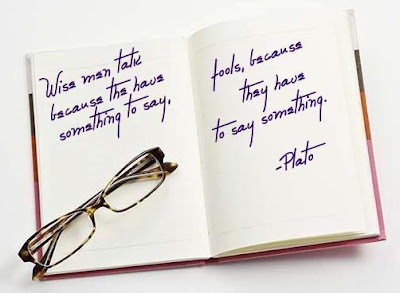 Wise men talk
because the have
something to say,
fools, because
they have
to say something.
-Plato